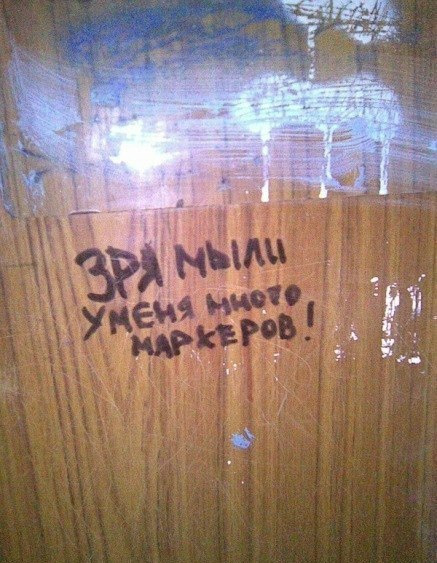 ЗРЯ МЫЛИ
УМЕНЯ МНОГО
МАРКЕРОВ!